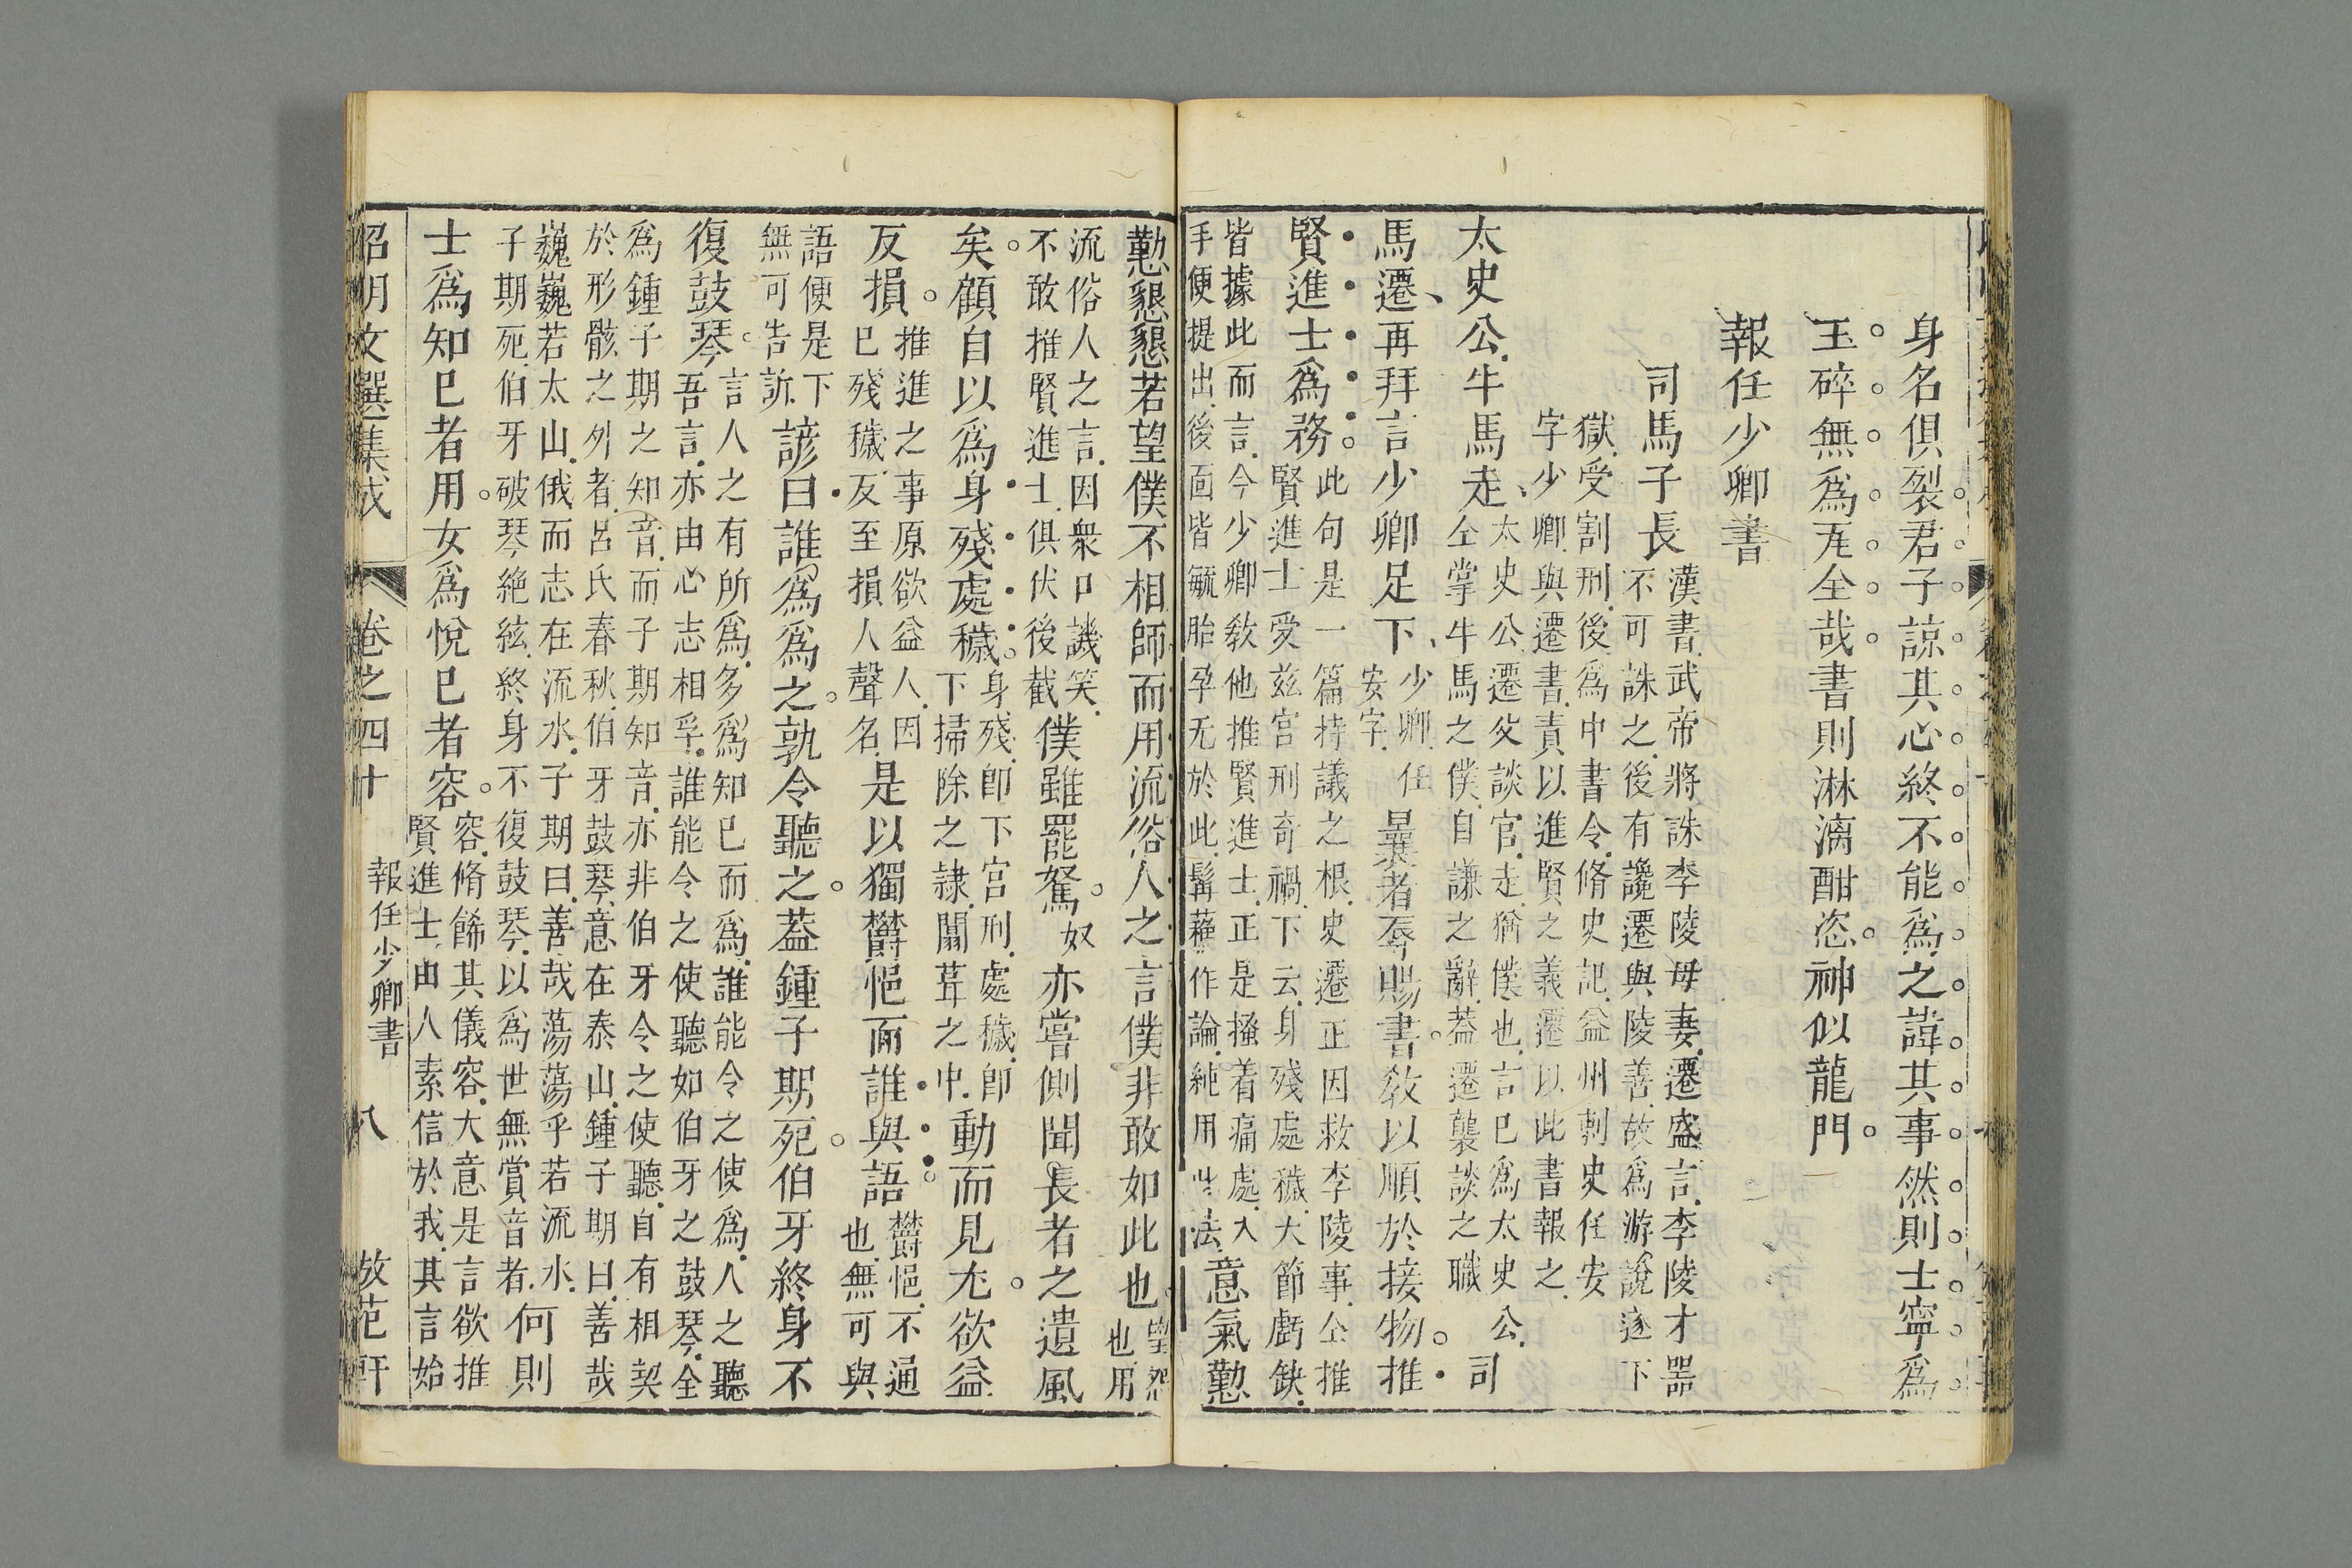 身名俱裂君子諒其心終不能爲之諱其事然則士寧爲
玉碎無爲瓦全哉書則淋漓酣恣神似龍門
報任少卿書
司馬子長
漢書武帝將誅李陵母妻遷盛言李陵才器
不可誅之後有讒遷與陵善故爲游說遂下
獄受割刑後爲中書令脩史記益州刺史任安
字少卿與遷書責以進賢之義遷以此書報之
太史公牛馬走
太史公遷父談官走猶僕也言巳爲太史公
仝掌牛馬之僕自謙之辭葢遷襲談之職
司
馬遷再拜言少卿足下
少卿任
安字
曩者辱賜書敎以順於接物推
賢進士爲務
此句是一篇持議之根史遷正因救李陵事仝推
賢進士受茲宫刑奇禍下云身殘處穢大節虧缺
皆據此而言今少卿敎他推賢進士正是搔着痛處入
手便提出後面皆毓胎孕无於此髯蘓作論純用此法
意氣懃
懃懇懇若望僕不相師而用流俗人之言僕非敢如此也
望怨
也用
流俗人之言因衆口譏笑
不敢推賢進士俱伏後截
僕雖罷駑
奴
亦嘗側聞長者之遺風
矣顧自以爲身殘處穢
身殘卽下宫刑處穢卽
下掃除之隷闒茸之中
動而見尤欲益
反損
推進之事原欲益人因
巳殘穢反至損人聲名
是以獨欝悒而誰與語
欝悒不通
也無可與
語便是下
無可吿訴
諺曰誰爲爲之孰令聽之葢鍾子期死伯牙終身不
復鼓琴
言人之有所爲多爲知巳而爲誰能令之使爲人之聽
吾言亦由心志相孚誰能令之使聽如伯牙之鼓琴全
爲鍾子期之知音而子期知音亦非伯牙令之使聽自有相契
於形骸之外者呂氏春秋伯牙鼓琴意在泰山鍾子期曰善哉
巍巍若太山俄而志在流水子期曰善哉蕩蕩乎若流水
子期死伯牙破琴絶絃終身不復鼓琴以爲世無賞音者
何則
士爲知巳者用女爲悅巳者容
容脩餙其儀容大意是言欲推
賢進士由人素信於我其言始
昭明文選集成
卷之四十
報任少卿書
八
放范軒